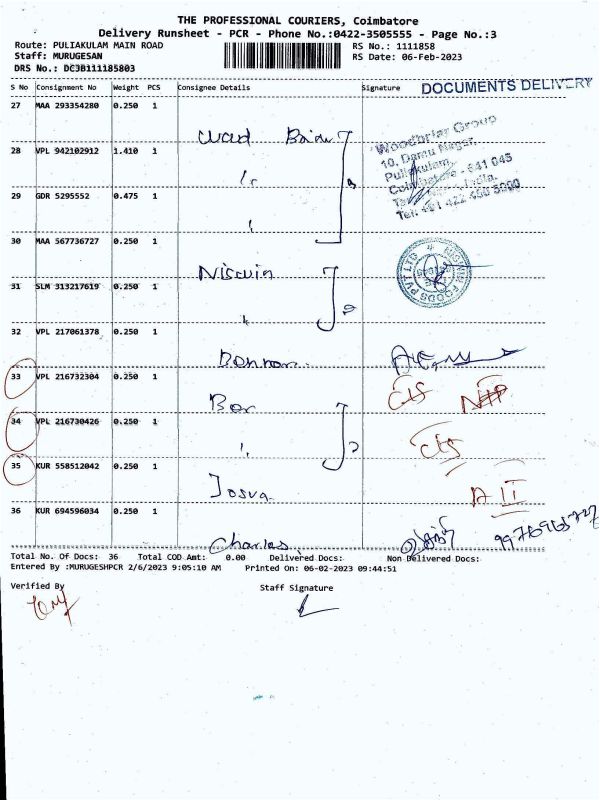 THE PROFESSIONAL COURIERS, Coimbatore
Delivery Runsheet - PCR - Phone No.:0422-3505555 - Page No.:3
Route: PULIAKULAM MAIN ROAD RS No.: 1111858
Staff: MURUGESAN RS Date: 06-Feb-2023
DRS No.: DCJB111185803
S No Consignment No Weight PCS Consignee Details Signature DOCUMENTS DELIVERY
27 MAA 293354280 0.250 1
Woodbriar Group
10, Damu Nagar,
28 VPL 942102912 1.410 1
Puliakulam,
Coimbatore - 641 045
29 GDR 5295552 0.475 1
Tel: +91 422 450 5000
30 MAA 567736727 0.250 1
31 SLM 313217619 0.250 1
32 VPL 217061378 0.250 1
33 VPL 216732304 0.250 1
Bon
34 VPL 216730426 0.250 1
35 KUR 558512042 0.250 1
Josva
36 KUR 694596034 0.250 1
Charlas
Total No. Of Docs: 36 Total COD Amt: 0.00 Delivered Docs: Non Delivered Docs:
Entered By :MURUGESHPCR 2/6/2023 9:05:10 AM Printed On: 06-02-2023 09:44:51
Verified By Staff Signature